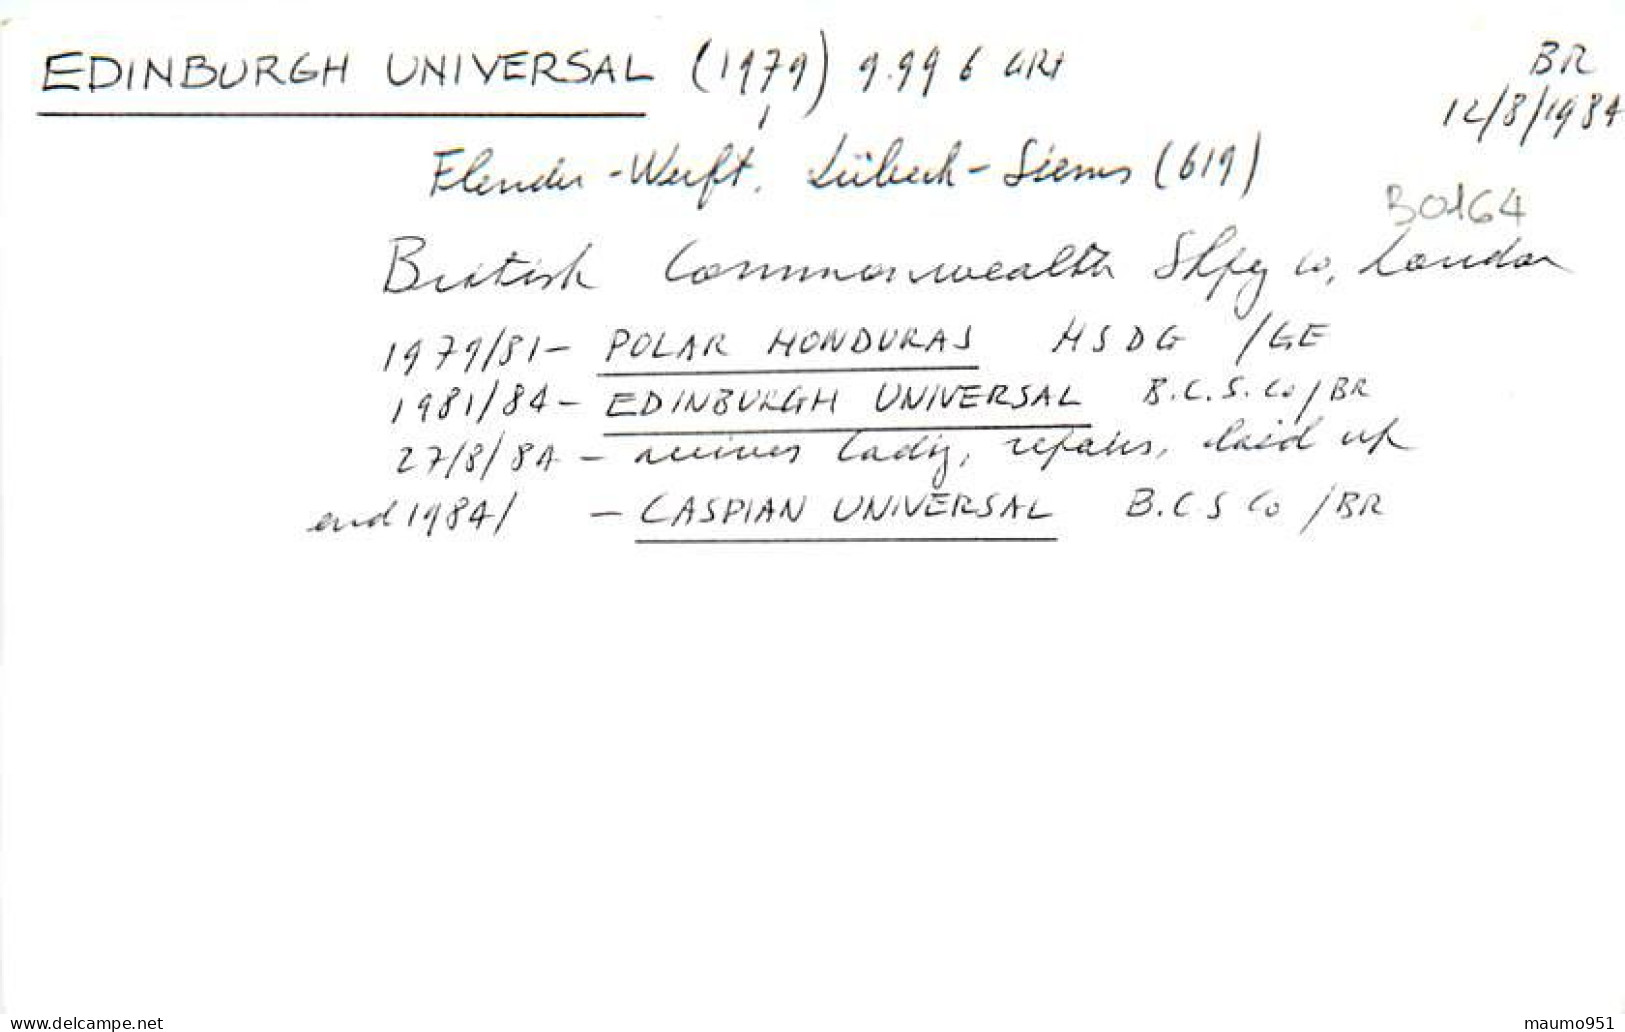 EDINBURGH UNIVERSAL (1979) 9.996 GRT
BR
12/8/1984
Flender-Werft, Lübeck-Siems (619)
B0164
British Commonwealth Shpg Co, London
1979/81- POLAR HONDURAS HSDG /GE
1981/84- EDINBURGH UNIVERSAL B.C.S.Co/BR
27/8/84 - arrives Cadiz, repairs, laid up
end 1984/ - CASPIAN UNIVERSAL B.C S Co /BR
www.delcampe.net
maumo951